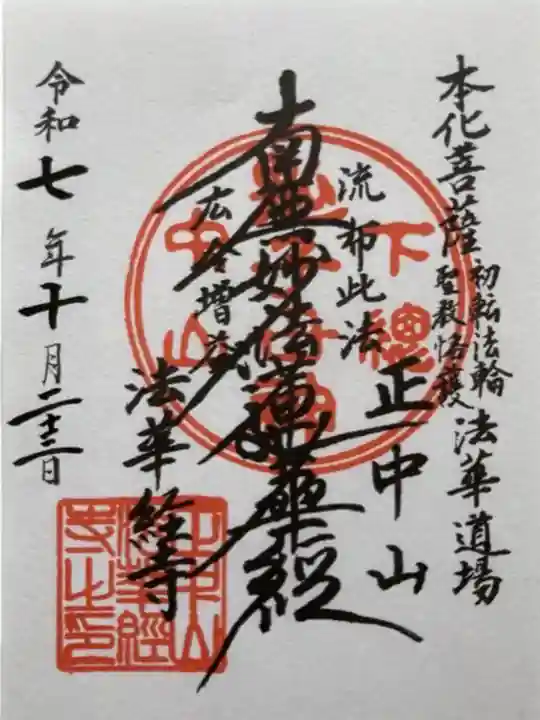 本化菩薩 初転法輪 聖教恪護 法華道場
正中山
流布此法
南無妙法蓮華経
広令増益
法華経寺
令和七年十月二十二日
下總
中山